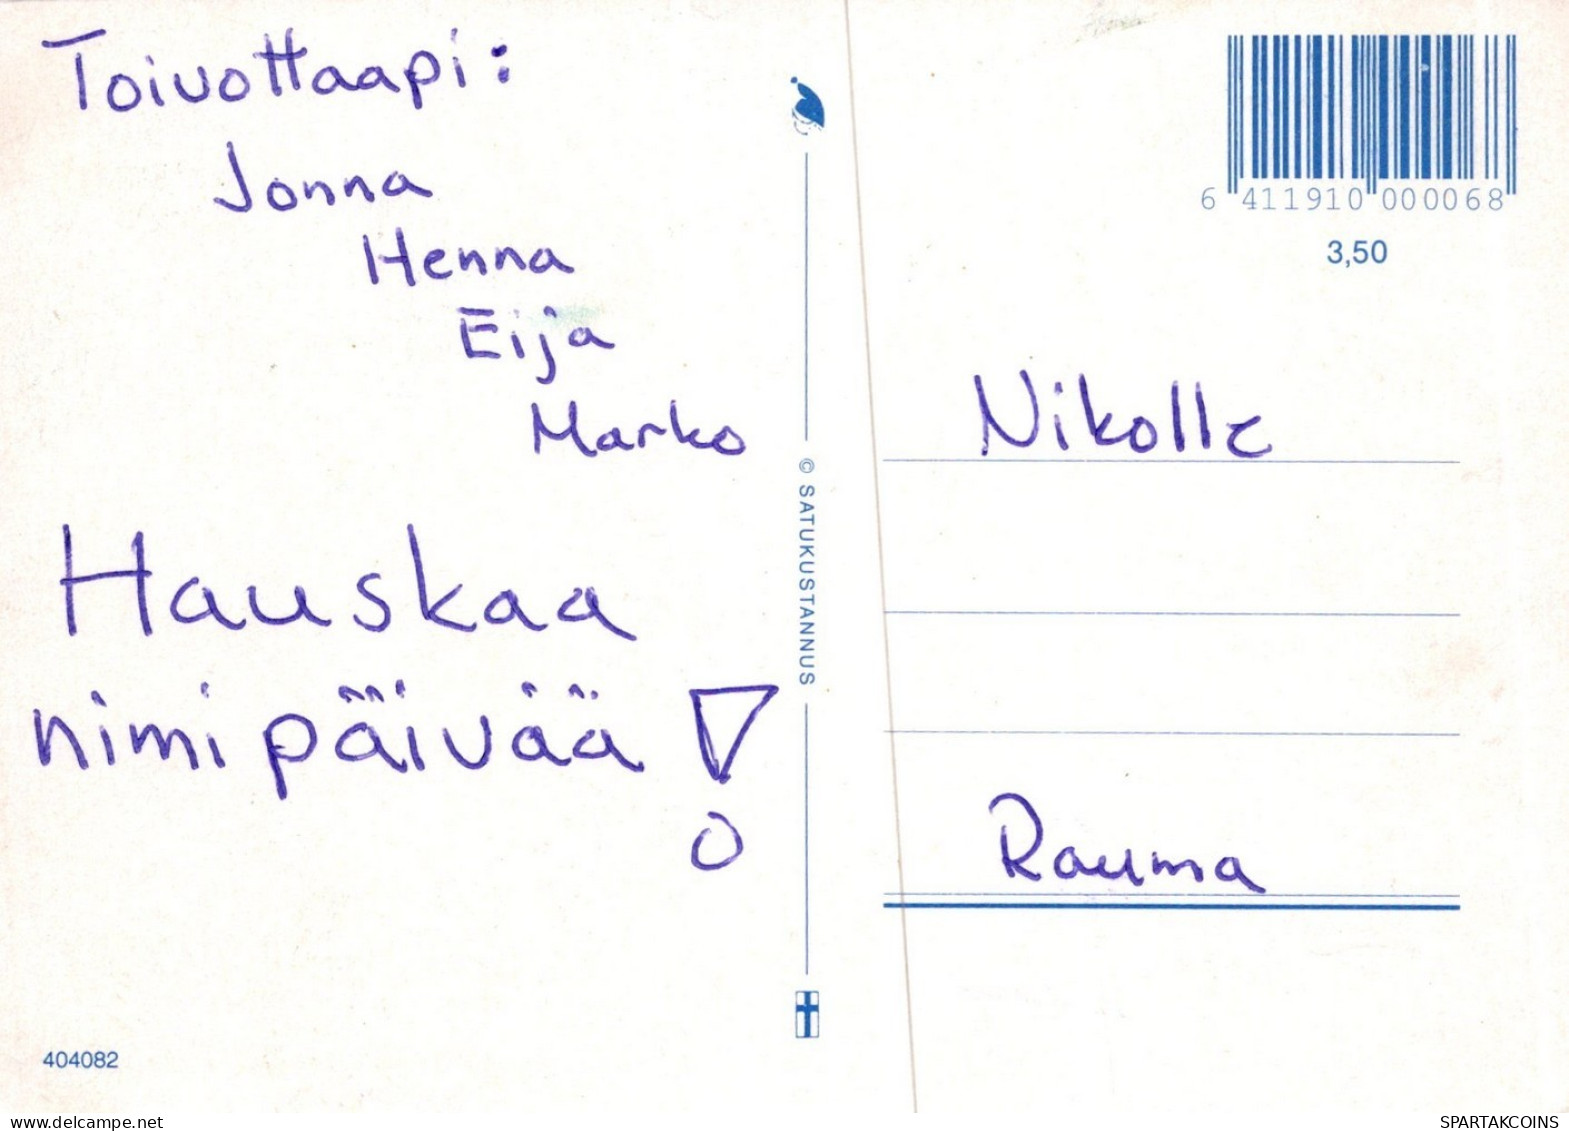 Toivottaapi:
Jonna
Henna
Eija
Marko
Hauskaa
nimipäivää!
404082
© SATUKUSTANNUS
6 411910 000068
3,50
Nikolle
Rauma
www.delcampe.net
SPARTAKCOINS